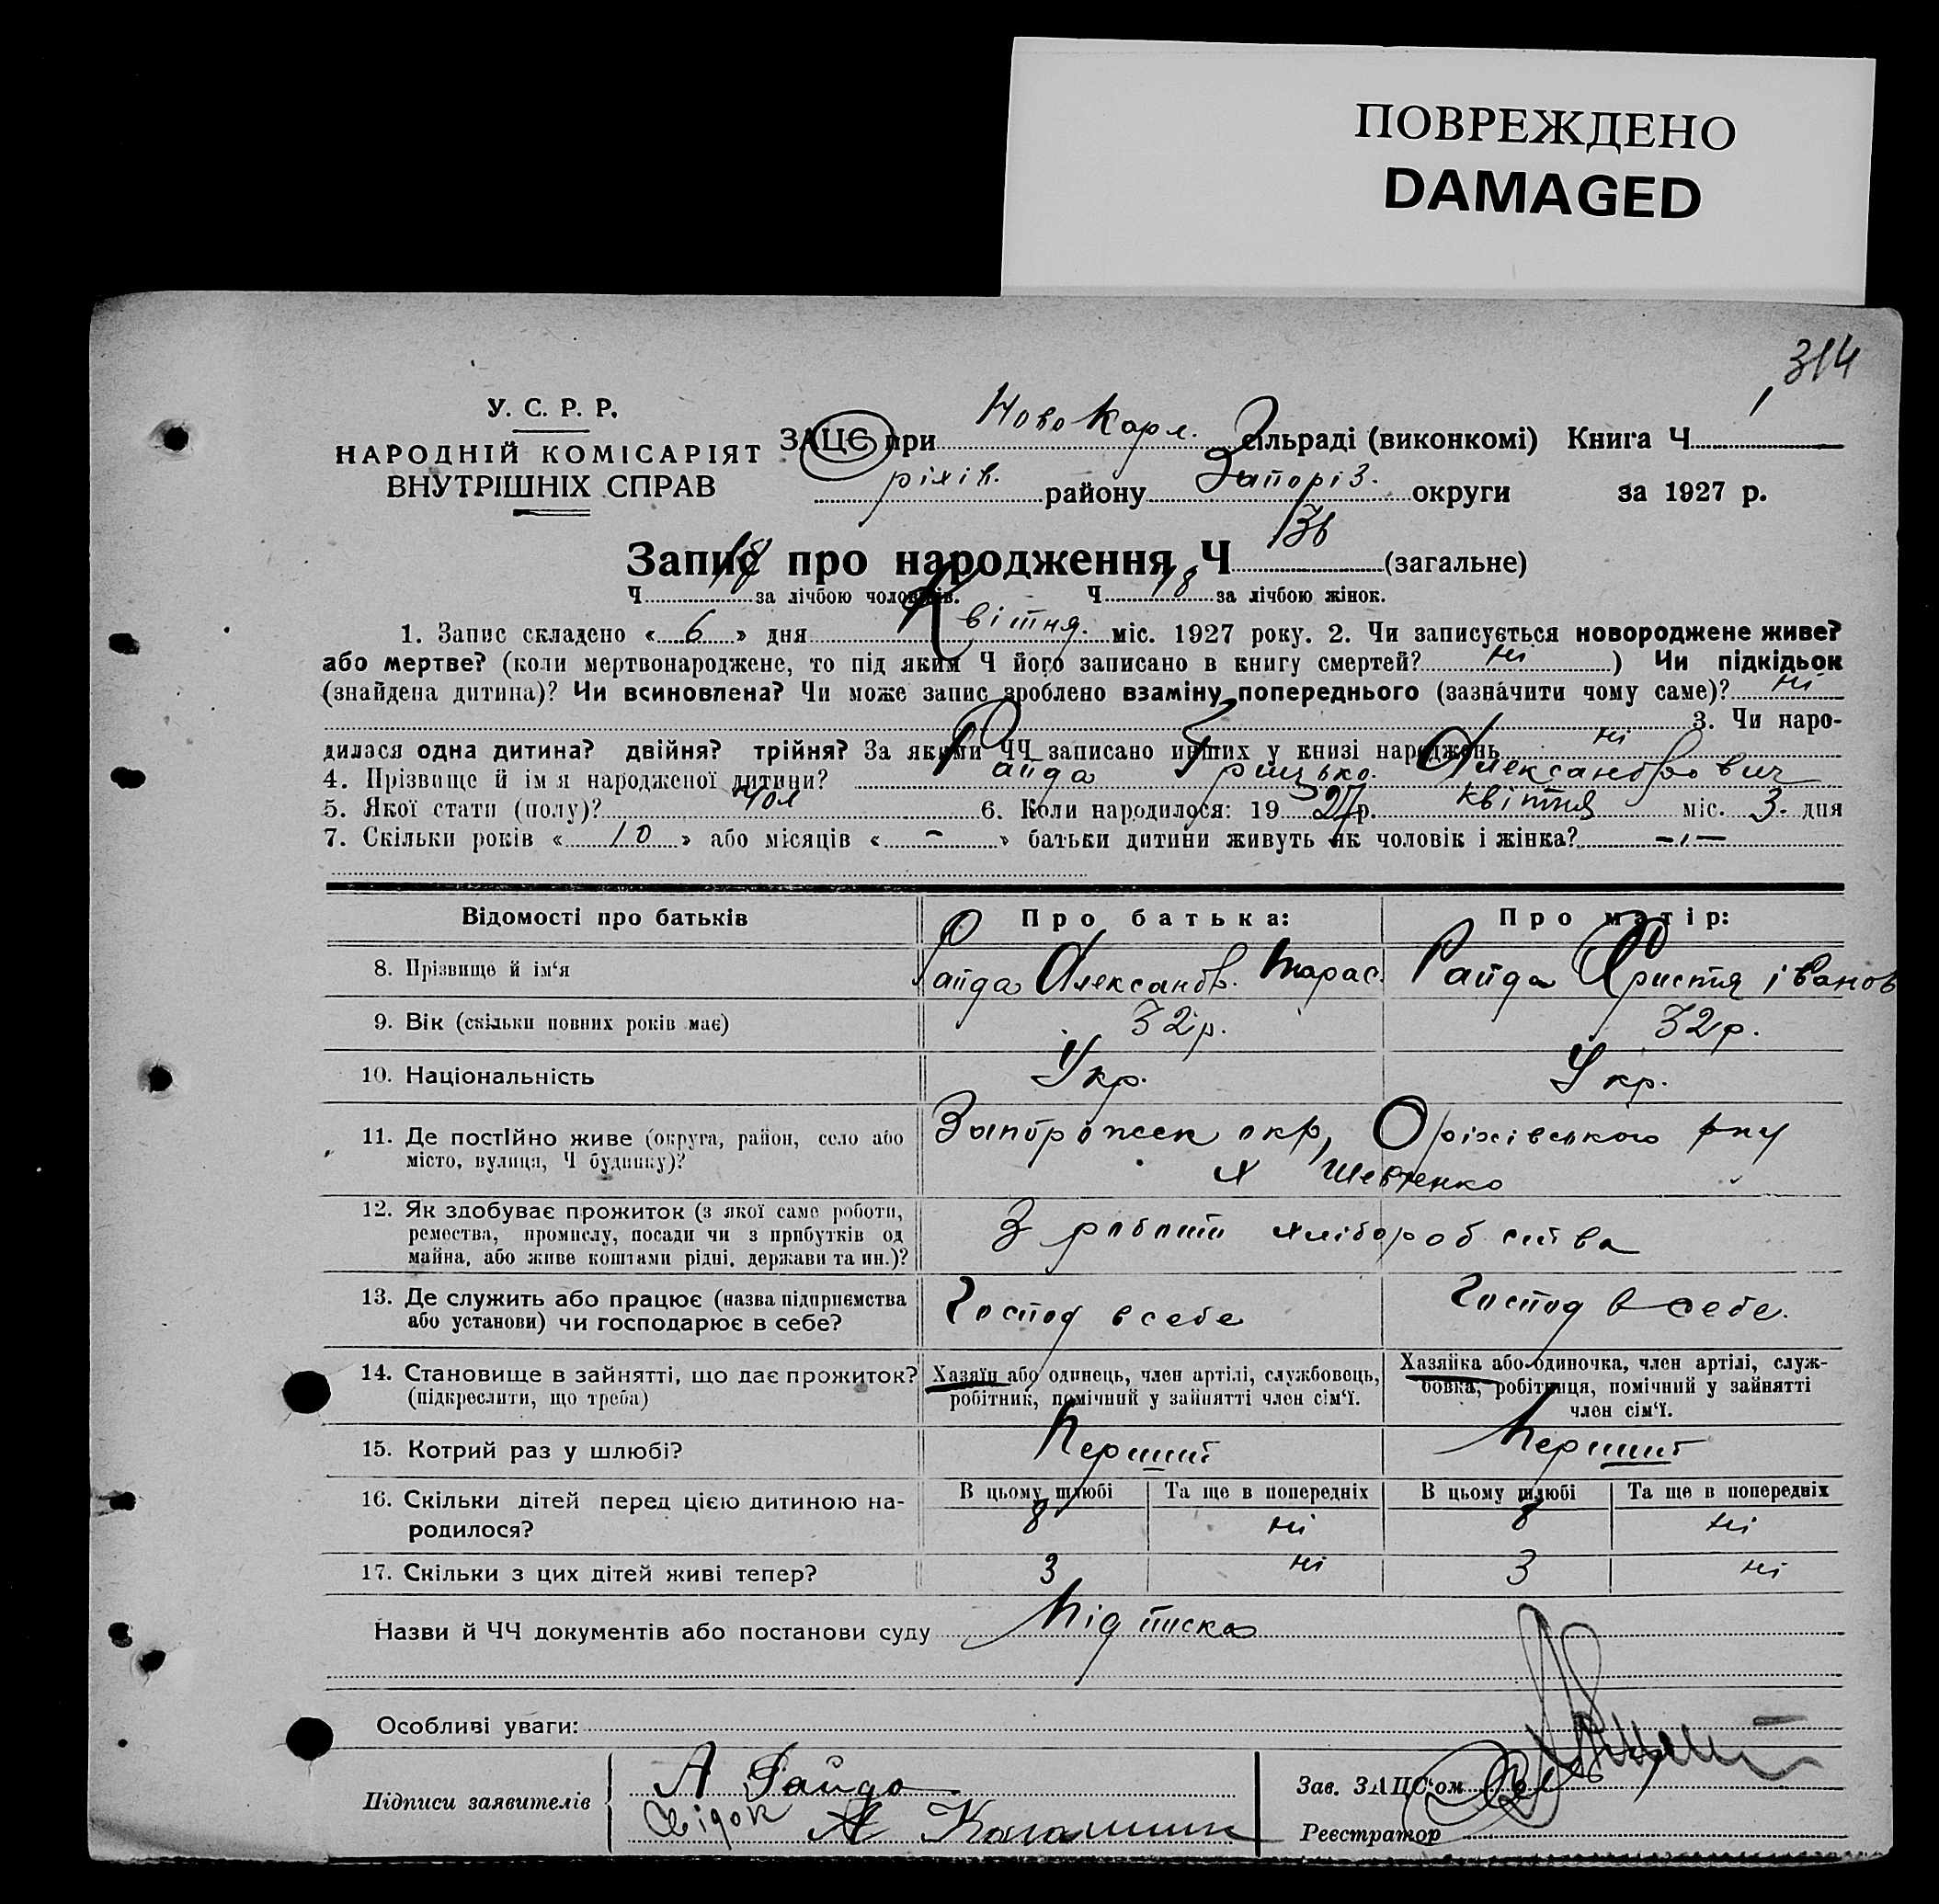 ПОВРЕЖДЕНО
DAMAGED
314
У. С. Р. Р.
НАРОДНІЙ КОМІСАРІЯТ
ВНУТРІШНІХ СПРАВ
ЗАЦС при Ново Карл. сільраді (виконкомі) Книга Ч
ріхів. району Запоріз. округи за 1927 р.
Запис про народження Ч 36 (загальне)
Ч 18 за лічбою чоловіків. Ч 18 за лічбою жінок.
1. Запис складено « 6 » дня Квітня. міс. 1927 року. 2. Чи записується новороджене живе?
або мертве? (коли мертвонароджене, то під яким Ч його записано в книгу смертей? ні ) Чи підкідьок
(знайдена дитина)? Чи всиновлена? Чи може запис зроблено взаміну попереднього (зазначити чому саме)? ні
3. Чи наро-
дилася одна дитина? двійня? трійня? За якими ЧЧ записано инших у книзі народжень ні
4. Прізвище й ім я народженої дитини? Райда Грицько. Олександрович
5. Якої стати (полу)? чол 6. Коли народилося: 19 27 р. квітня міс. 3. дня
7. Скільки років « 10 » або місяців « - » батьки дитини живуть як чоловік і жінка? -,-
Відомості про батьків Про батька: Про матір:
8. Прізвище й ім'я Райда Олександ. Тарас. Райда Христя іванов
9. Вік (скільки повних років має) 32 р. 32 р.
10. Національність Укр. Укр.
11. Де постійно живе (округа, район, село або місто, вулиця, Ч будинку)? Запорожск окр, Оріхівського рну
х Шевченко
12. Як здобуває прожиток (з якої саме роботи,
ремества, промислу, посади чи з прибутків од
майна, або живе коштами рідні, держави та ин.)? З роботи хліборобства
13. Де служить або працює (назва підприємства
або установи) чи господарює в себе? Господ в себе Господ в себе.
14. Становище в зайнятті, що дає прожиток?
(підкреслити, що треба)
Хазяїн або одинець, член артілі, службовець,
робітник, помічний у зайнятті член сім'ї.
Хазяйка або одиночка, член артілі, служ-
бовка, робітниця, помічний у зайнятті
член сім'ї.
15. Котрий раз у шлюбі? Перший Перший
В цьому шлюбі Та ще в попередніх В цьому шлюбі Та ще в попередніх
16. Скільки дітей перед цією дитиною на-
родилося? 8 ні 8 ні
17. Скільки з цих дітей живі тепер? 3 ні 3 ні
Назви й ЧЧ документів або постанови суду Підписка
Особливі уваги:
Підписи заявителів А Райда
Свідок А
Зав. ЗАЦС'ом
Реєстратор